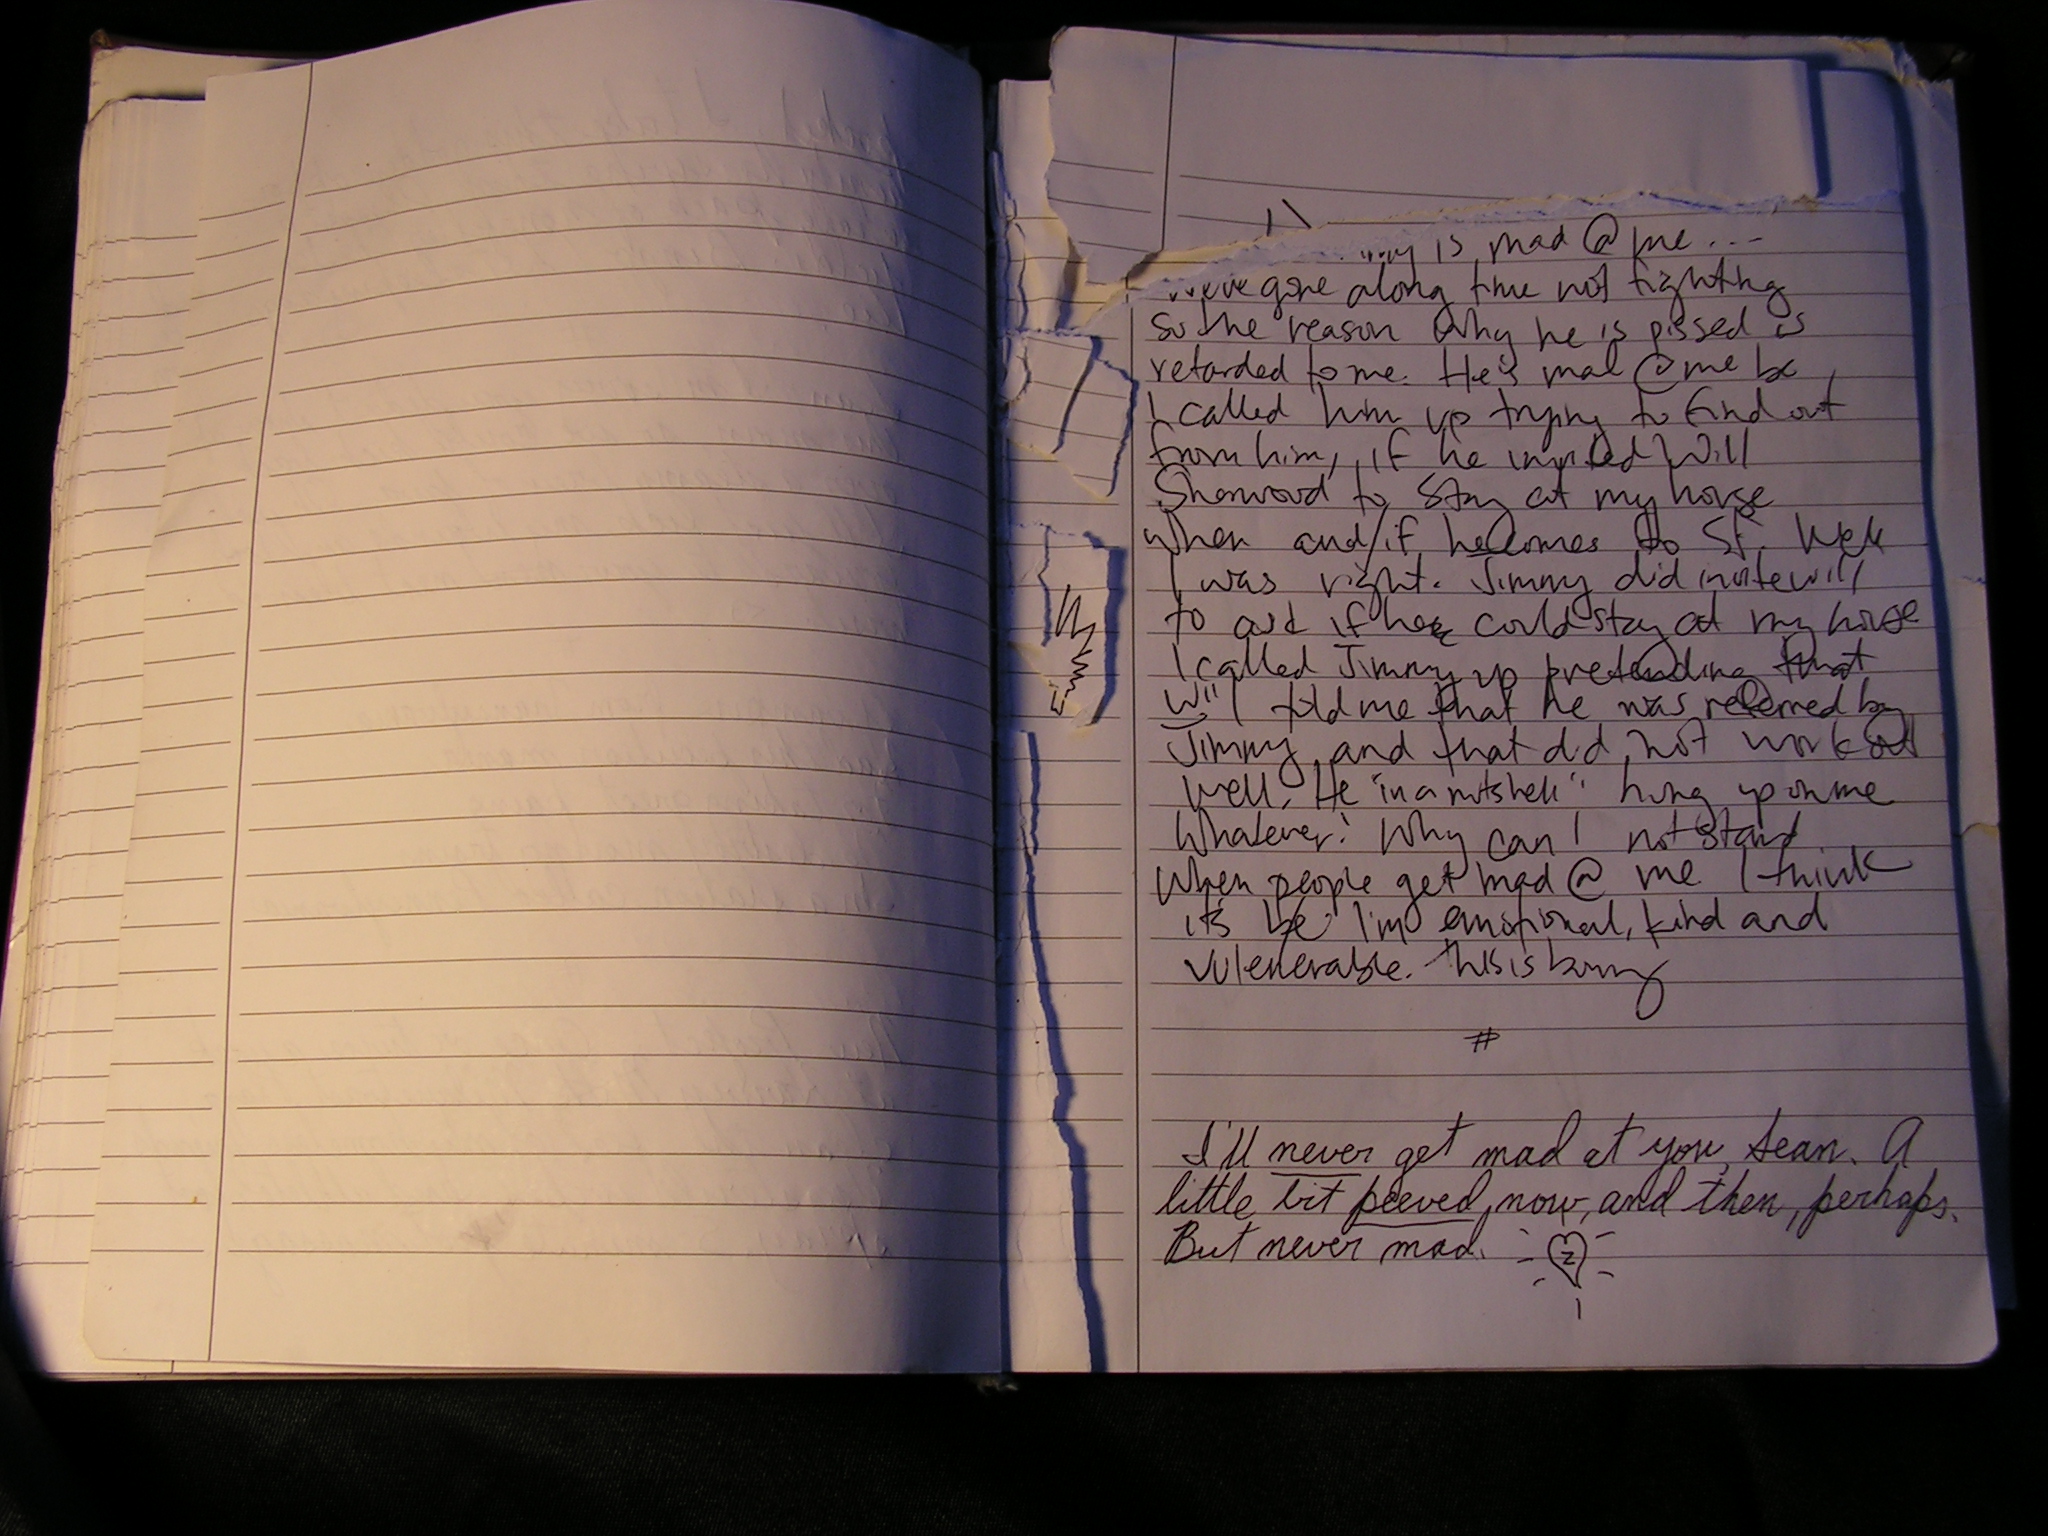 is mad @ me...
We've gone along time not fighting
so the reason why he is pissed is
retarded to me. He's mad @ me bc
I called him up trying to find out
from him, if he invited Will
Sherwood to stay at my house
when and/if he comes to SF. Well
I was right. Jimmy did invite will
to ask if he could stay at my house
I called Jimmy up pretending that
Will told me that he was referred by
Jimmy and that did not work out
well. He "in a nutshell" hung up on me
Whatever! Why can I not stand
when people get mad @ me I think
it's bc I'm emotional, kind and
vulenerable. This is boring
#
I'll never get mad at you, Sean. A
little bit peeved, now, and then, perhaps.
But never mad.
Z